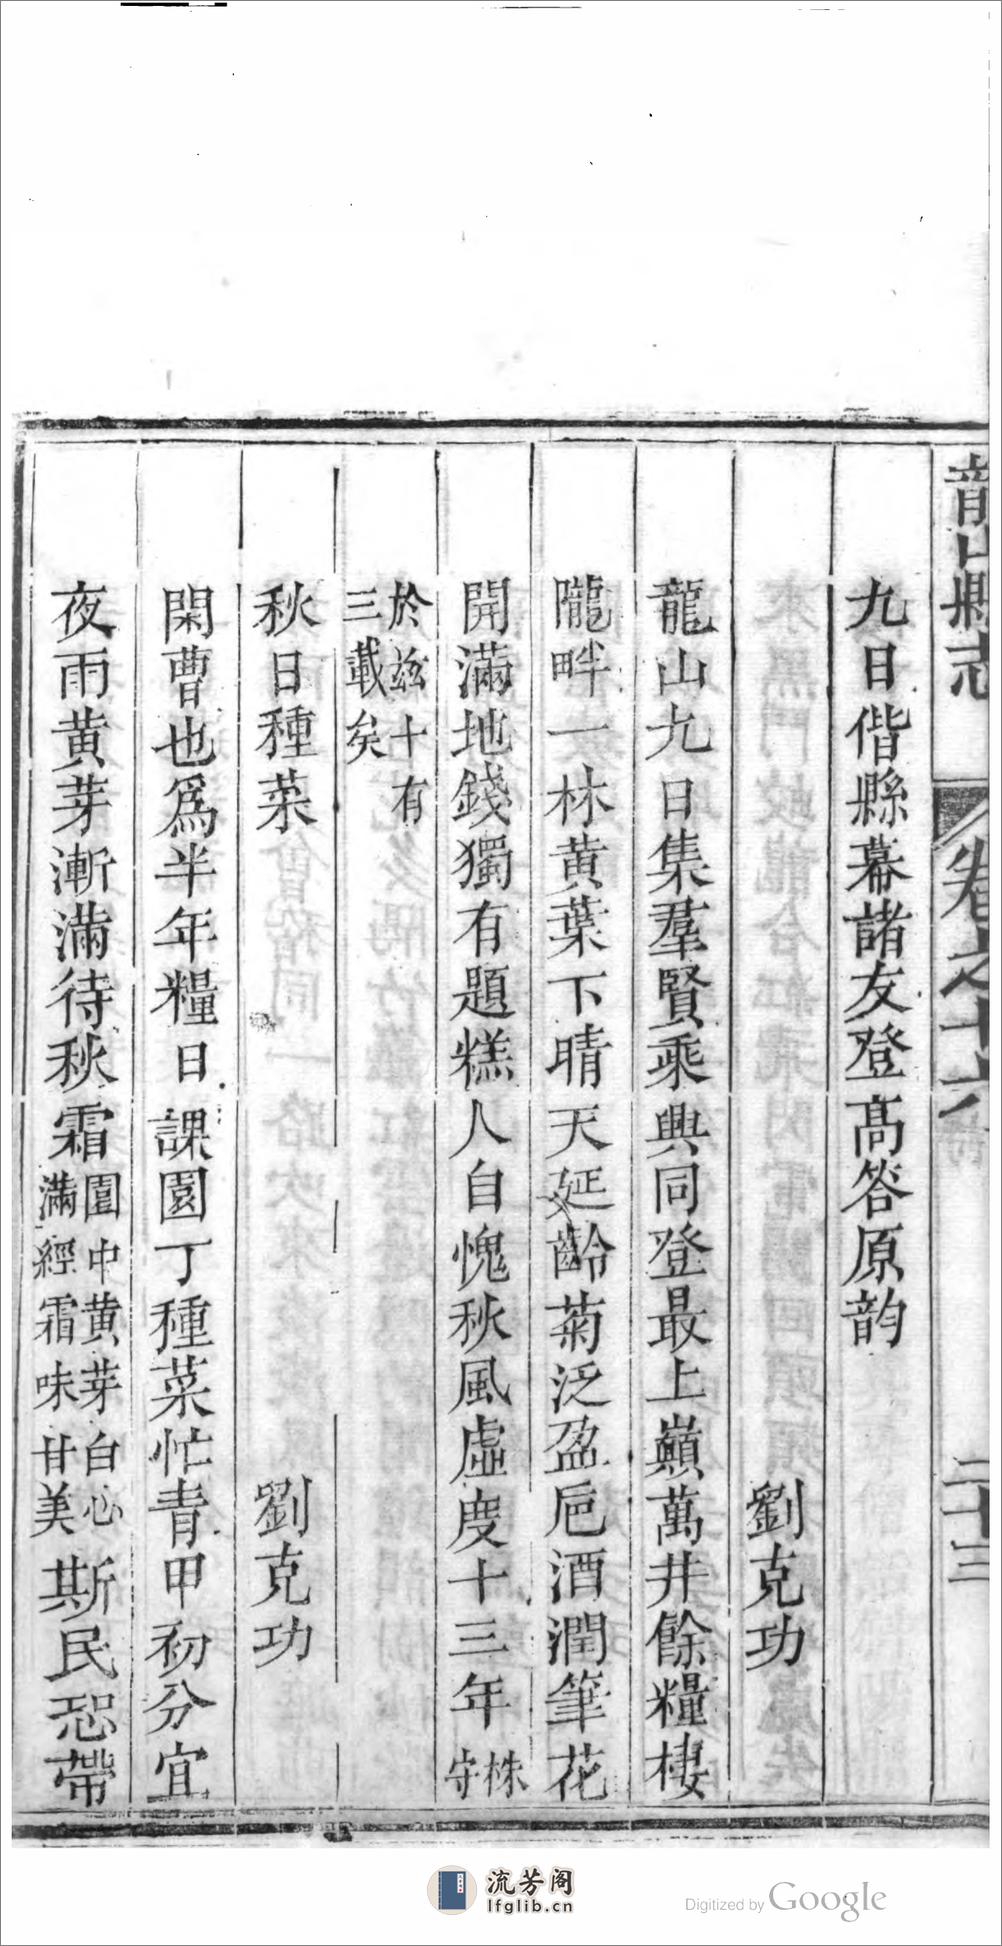 龍山縣志 卷之十六 二十三
九日偕縣幕諸友登高答原韵
劉克功
龍山九日集羣賢乘興同登最上巔萬井餘糧棲
隴畔一林黄葉下晴天延齡菊泛盈巵酒潤筆花
開滿地錢獨有題糕人自愧秋風虛度十三年株守
於茲十有
三載矣
秋日種菜 劉克功
閑曹也爲半年糧日課園丁種菜忙青甲初分宜
夜雨黄芽漸滿待秋霜園中黄芽白心滿經霜味甘美斯民恐帶
流芳阁
lfglib.cn
Digitized by Google